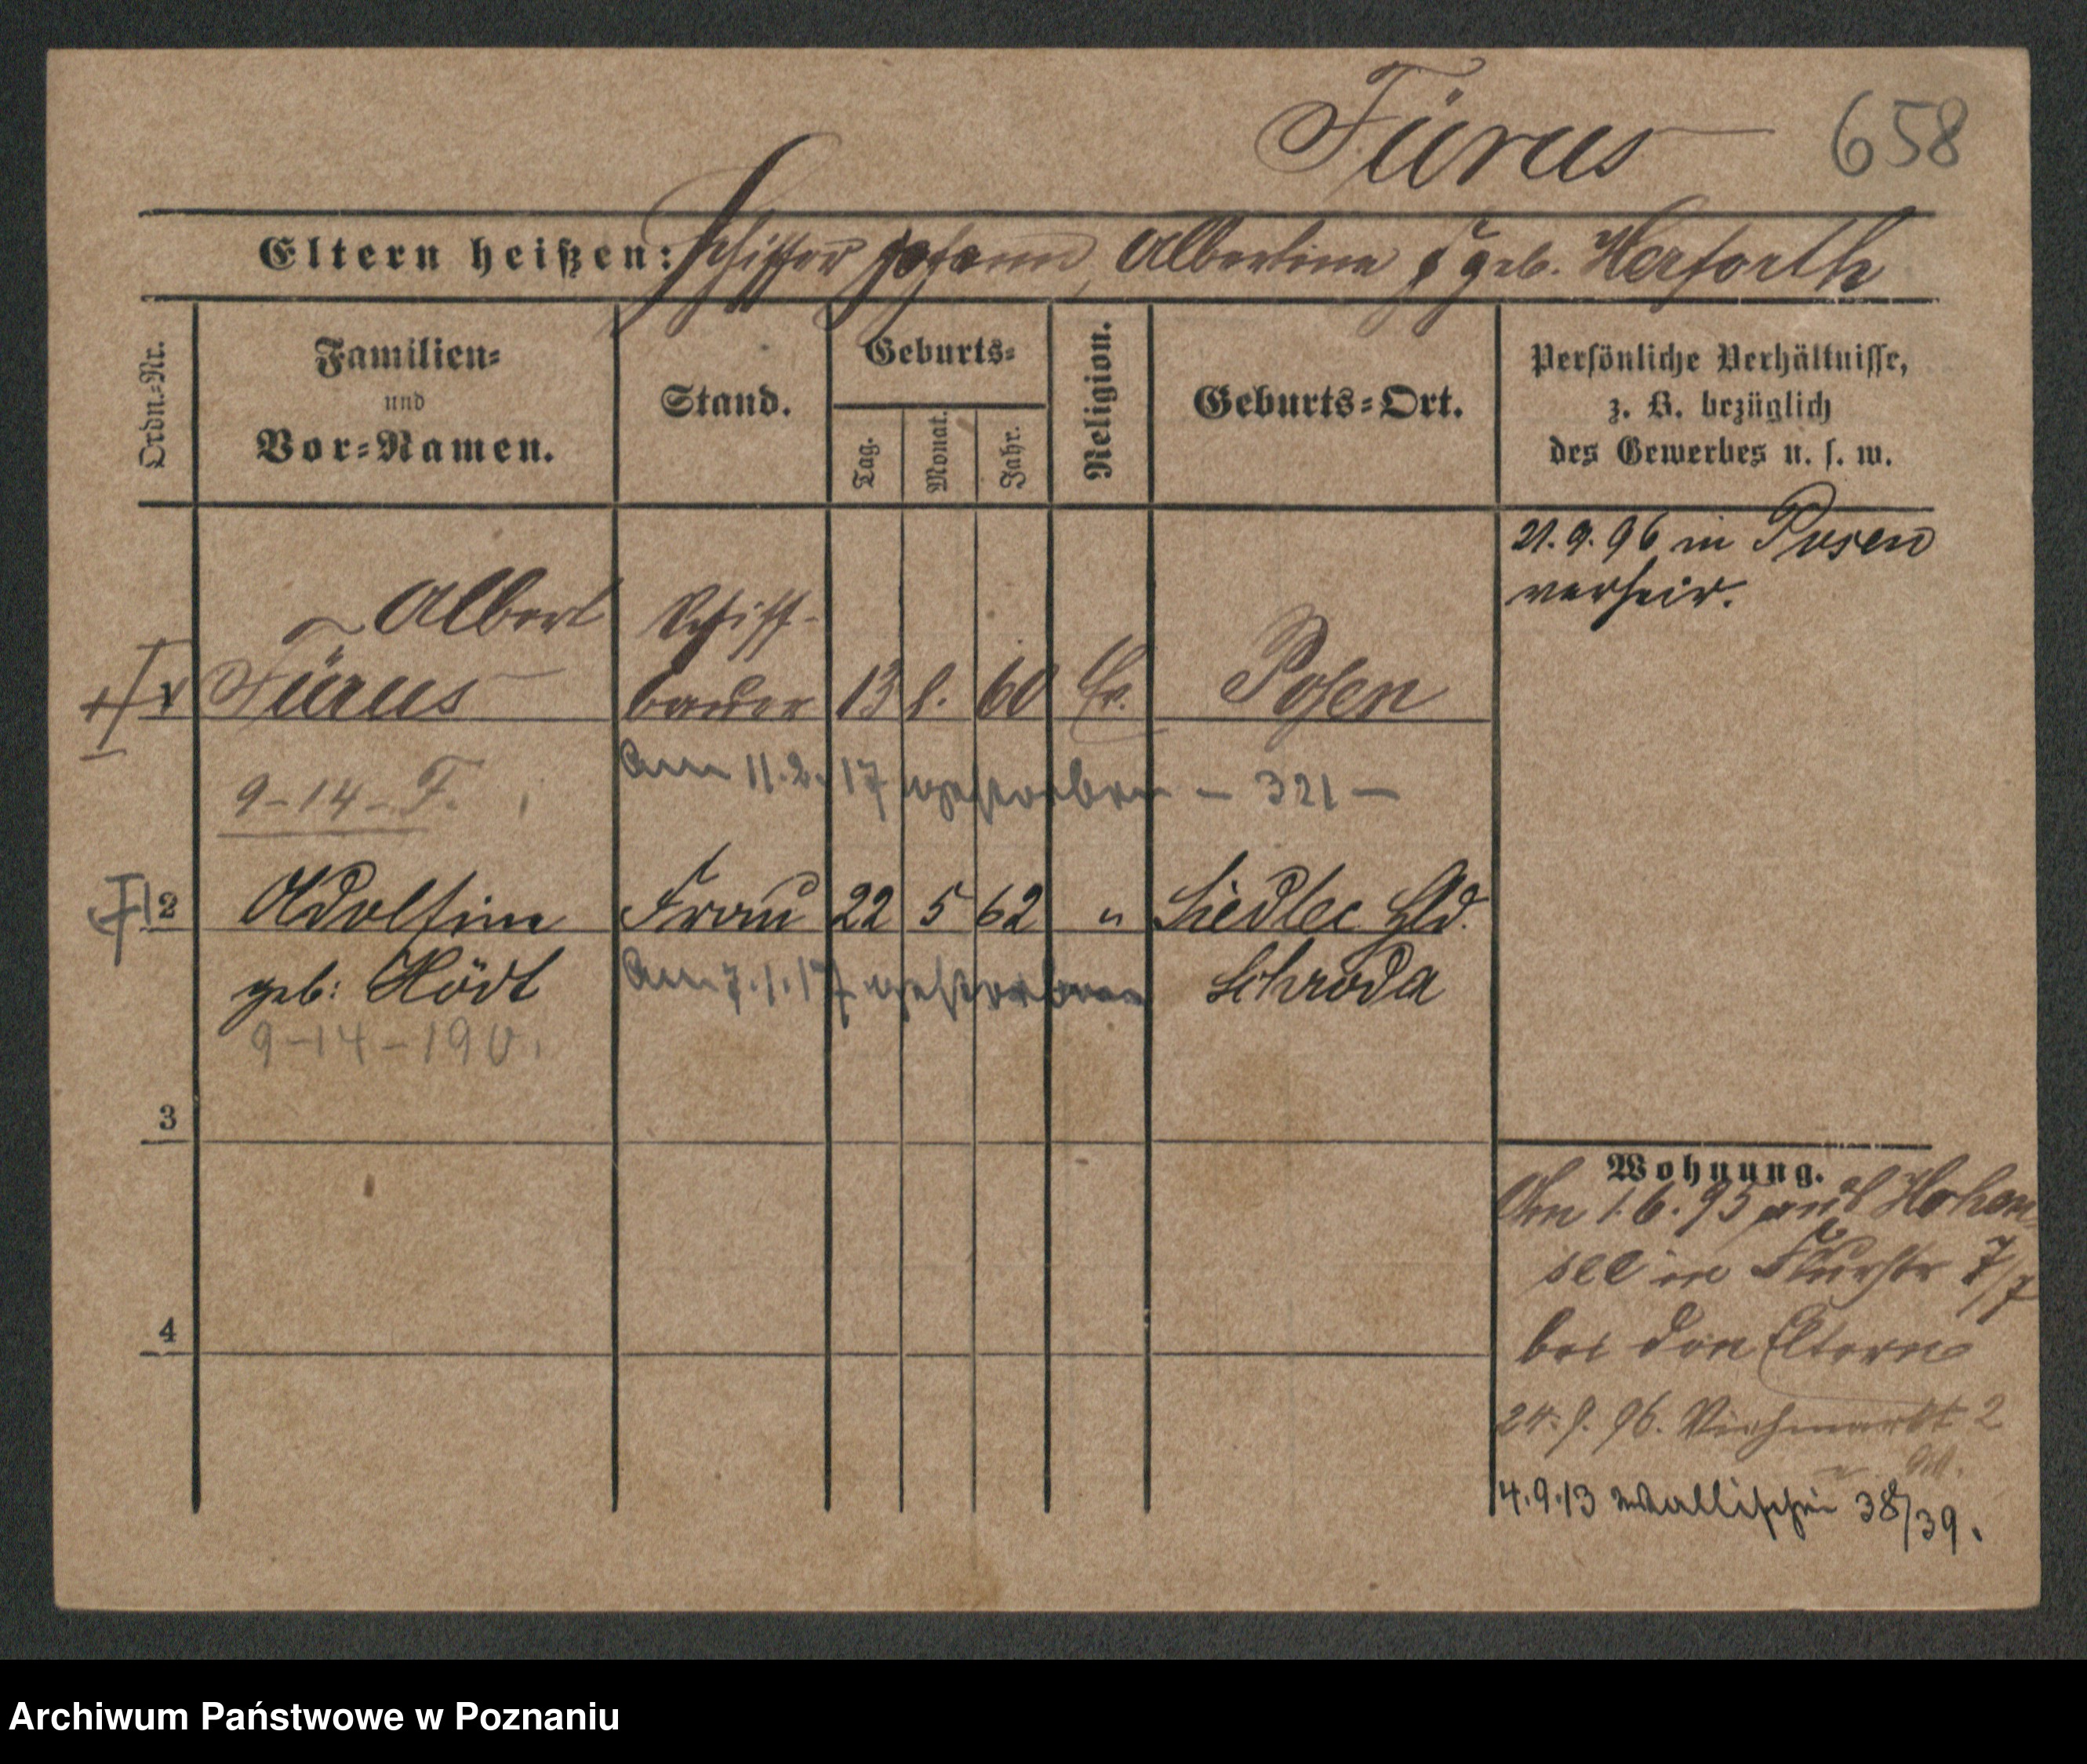 Fürus 658
Eltern heißen: Schiffer Johann, Albertine geb. Herforth
Ordn.-Nr.
Familien-
und
Vor-Namen.
Stand.
Geburts-
Tag.
Monat.
Jahr.
Religion.
Geburts-Ort.
Persönliche Verhältnisse,
z. B. bezüglich
des Gewerbes u. s. w.
21.9.96 in Posen
verheir.
Albert Schiff-
Fürus bauer 13 60 Ev. Posen
9-14-F.
am 11.2.17 gestorben - 321 -
2 Adolfine Frau 22 5 62 " Siedlec
geb: Hödt Schroda
am 7.1.17 gestorben
9-14-190.
3
4
Wohnung.
1.6.95 aus Hohen
see in Flurstr 7/7
bei den Eltern
24.9.96. Viehmarkt 2
4.9.13 Wallischei 38/39.
Archiwum Państwowe w Poznaniu